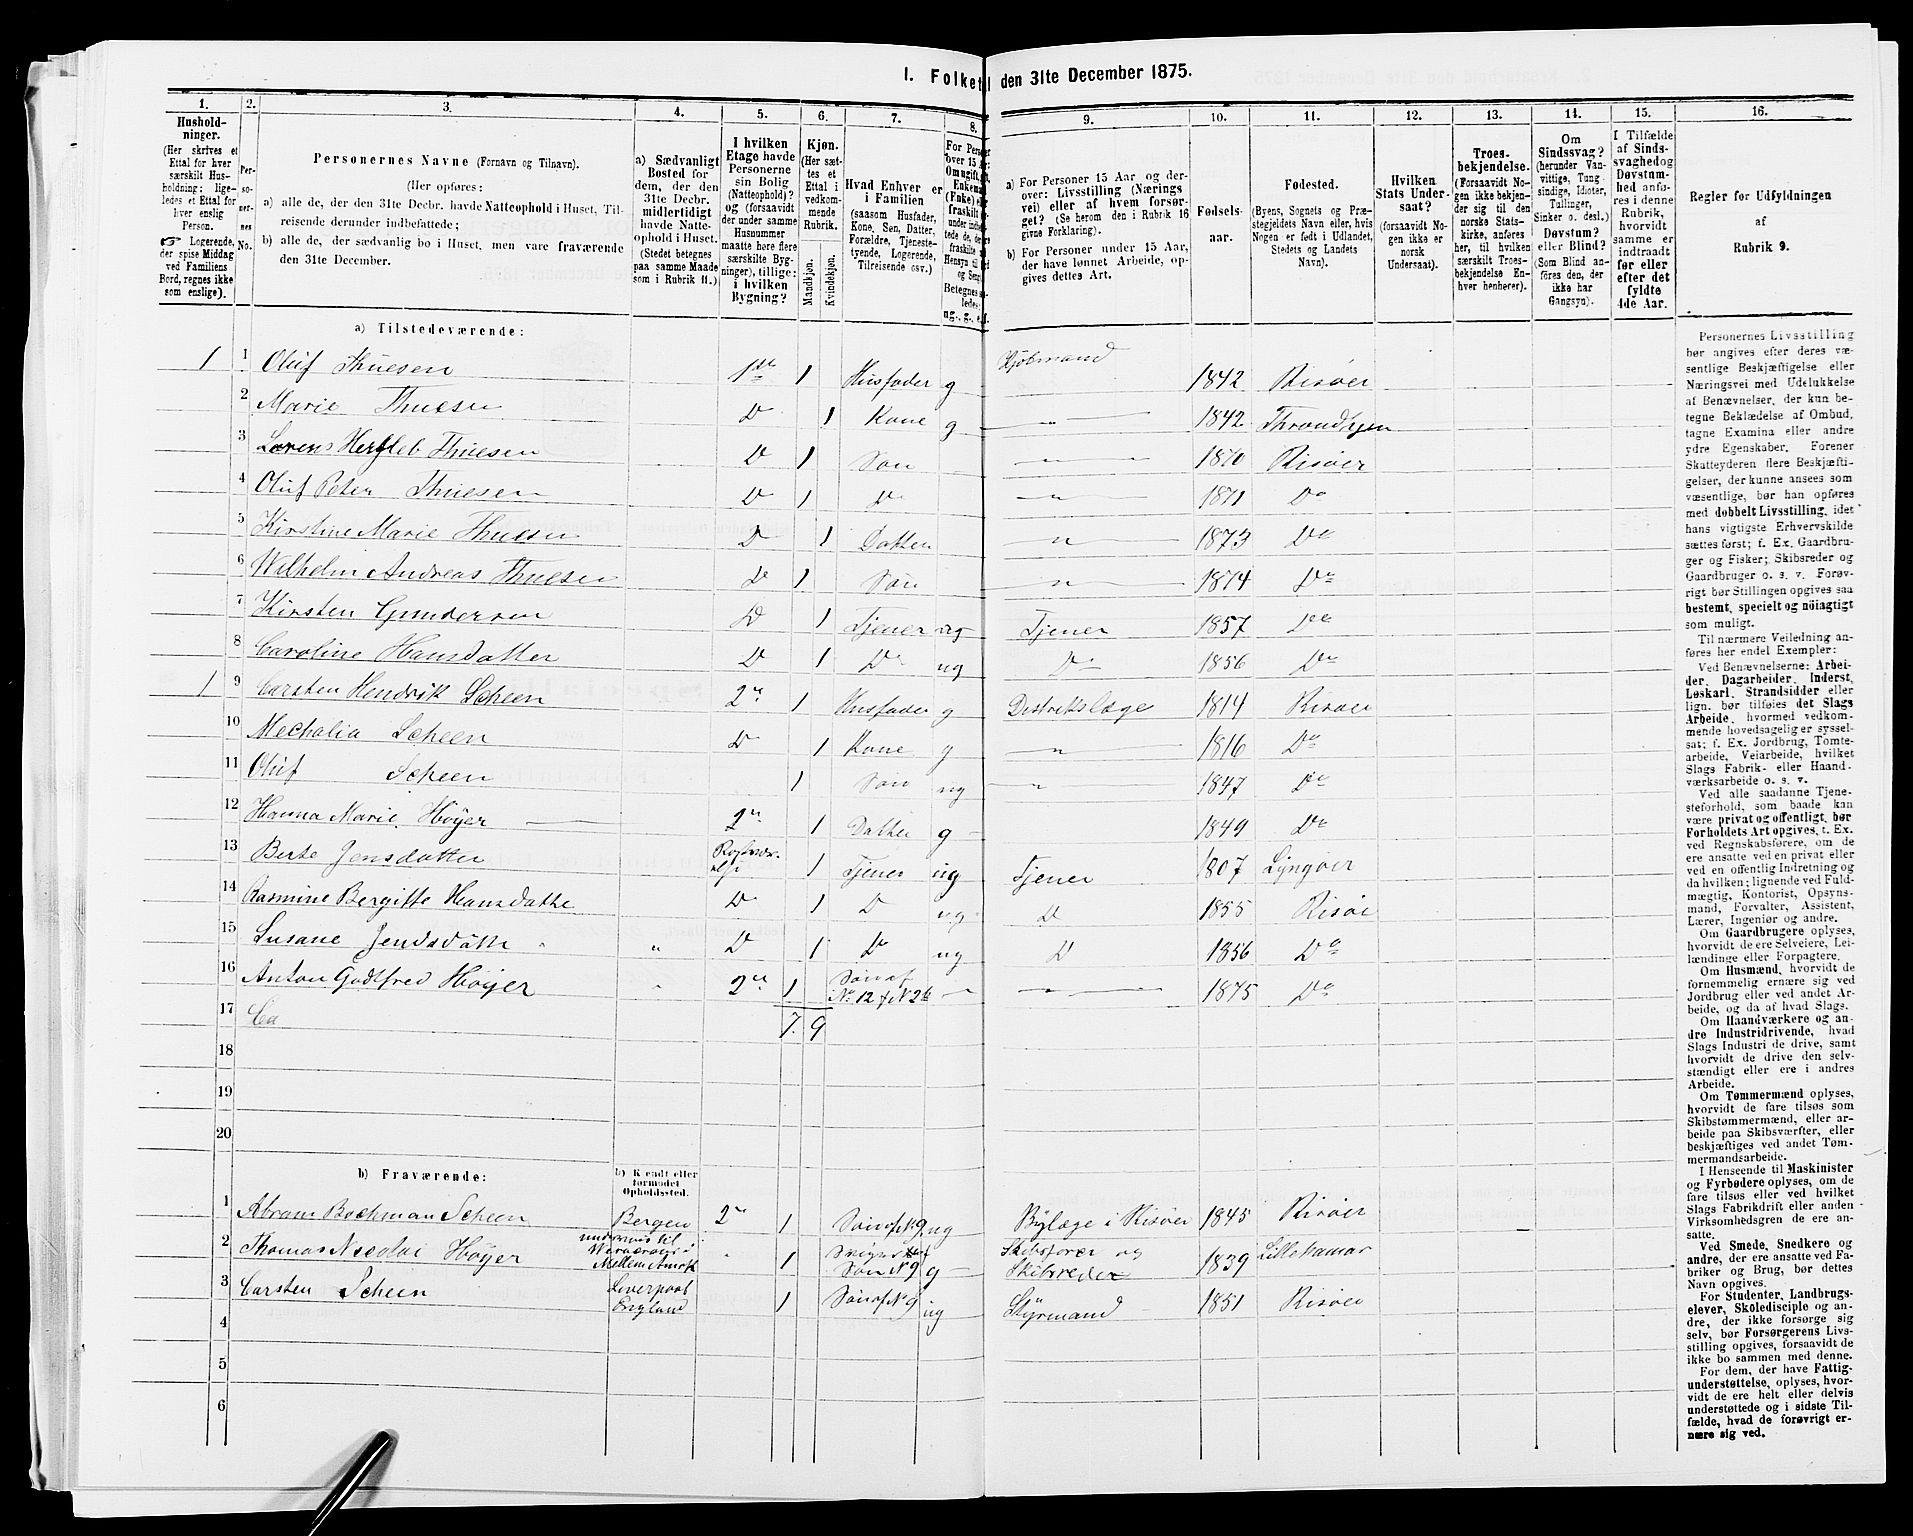 I. Folket den 31te December 1875.
1. 2. 3. 4. 5. 6. 7. 8. 9. 10. 11. 12. 13. 14. 15. 16.
Hushold-
ninger.
(Her skrives et
Ettal for hver
særskilt Hus-
holdning; lige-
ledes et Ettal for
hver enslig
Person.
Logerende,
der spise Middag
ved Familiens
Bord, regnes ikke
som enslige).
Per-
so-
ner-
nes
No.
Personernes Navne (Fornavn og Tilnavn).
(Her opføres:
a) alle de, der den 31te Decbr. havde Natteophold i Huset, Til-
reisende derunder indbefattede;
b) alle de, der sædvanlig bo i Huset, men vare fraværende
den 31te December.
a) Sædvanligt
Bosted for
dem, der den
31te Decbr.
midlertidigt
havde Natte-
ophold i Huset.
(Stedet betegnes
paa samme Maade
som i Rubrik 11.)
I hvilken
Etage havde
Personerne
sin Bolig
(Natteophold)?
og (forsaavidt
der under samme
Husnummer
maatte høre flere
særskilte Byg-
ninger), tillige:
i hvilken
Bygning?
Kjøn.
(Her sæt-
tes et
Ettal i
vedkom-
mende
Rubrik.
Mandkjøn.
Kvindekjøn.
Hvad Enhver er
i Familien
(saasom Husfader,
Kone, Søn, Datter,
Forældre, Tjeneste-
tyende, Logerende,
Tilreisende osv.)
For Person
over 15 A
Om ugift, g
Enkem
(Enke) e
fraskilt
Hensyn til
og Seng
Betegnes
ledes:
ug., g., e.f.
a) For Personer 15 Aar og der-
over: Livsstilling (Nærings
vei) eller af hvem forsør-
get? (Se herom den i Rubrik 16
givne Forklaring).
b) For Personer under 15 Aar,
der have lønnet Arbeide, op-
gives dettes Art.
Fødsels-
aar.
Fødested.
(Byens, Sognets og Præ-
stegjeldets Navn eller, hvis
Nogen er født i Udlandet,
Stedets og Landets
Navn).
Hvilken
Stats Under-
saat?
(forsaavidt No-
gen ikke er
norsk
Undersaat).
Troes-
bekjendelse.
(Forsaavidt No-
gen ikke bekjen-
der sig til den
norske Stats-
kirke, anføres
her, til hvilken
særskilt Troes-
bekjendelse En-
hver henhører).
Om
Sindssvag?
(herunder Van-
vittige, Tung-
sindige, Idioter,
Tullinger,
Sinker o. desl.)
Døvstum?
eller Blind?
(Som Blind an-
føres den, der
ikke har
Gangsyn).
I Tilfælde
af Sinds-
svaghed og
Døvstum-
hed anfø-
res i denne
Rubrik,
hvorvidt
samme er
indtraadt
før eller
efter det
fyldte
4de Aar.
Regler for Udfyldningen
af
Rubrik 9.
a) Tilstedeværende:
1 1 Oluf Thuesen 1ste 1 Husfader g Kjøbmand 1842 Risøer
2 Marie Thuesen D 1 Kone g " 1842 Throndhjem
3 Lorens Hersleb Thuesen D 1 Søn " 1870 Risøer
4 Oluf Peter Thuesen D 1 Do " 1871 Do
5 Kirstine Marie Thuesen D 1 Datter " 1873 Do
6 Wilhelm Andreas Thuesen D 1 Søn " 1874 Do
7 Kirsten Gundersen D 1 Tjener ug Tjener 1857 Do
8 Caroline Hansdatter D 1 Do ug Do 1856 Do
1 9 Carsten Hendrik Scheen 2n 1 Husfader g Distriktslæge 1814 Risøer
10 Mechalia Scheen D 1 Kone g " 1816 Do
11 Oluf Scheen 1 Søn ug " 1847 Do
12 Hanna Marie Høyer 2n 1 Datter g 1849 Do
13 Berte Jensdatter 1 Tjener ug Tjener 1807 Lyngøer
14 Rasmine Bergitte Hansdatte D 1 D ug D 1855 Risøe
15 Susane Jendsdatte " D 1 Do ug D 1856 Do
16 Anton Godtfred Høyer " 2n 1 Søn af No 12 f N 2 b " 1875 Do
17 Ca 7. 9
18
19
20
b) Fraværende:
b) Kjendt eller
formodet
Opholdssted.
1 Abram Bochman Scheen Bergen 2n 1 Søn af N 9 ug Bylæge i Risøer 1845 Risøer
2 Thomas Nicolai Høyer underveis til Mellem Amrk " 1 Søn N 9 g Skibsfører og Skibsreder 1839 Lillehamar
3 Carsten Scheen Liverpool England 1 Søn af N 9 ug Styrmand 1851 Risøer
4
5
6
Personernes Livsstilling
bør angives efter deres væ-
sentlige Beskjæftigelse eller
Næringsvei med Udelukkelse
af Benævnelser, der kun be-
tegne Beklædelse af Ombud,
tagne Examina eller andre
ydre Egenskaber. Forener
Skatteyderen flere Beskjæfti-
gelser, der kunne ansees som
væsentlige, bør han opføres
med dobbelt Livsstilling, idet
hans vigtigste Erhvervskilde
sættes først; f. Ex. Gaardbru-
ger og Fisker; Skibsreder og
Gaardbruger o. s. v. Forøv-
rigt bør Stillingen opgives saa
bestemt, specielt og nöiagtigt
som muligt.
Til nærmere Veiledning an-
føres her endel Exempler:
Ved Benævnelserne: Arbei-
der, Dagarbeider, Inderst,
Løskarl, Strandsidder eller
lign. bør tilføies det Slags
Arbeide, hvormed vedkom-
mende hovedsagelig er syssel-
sat; f. Ex. Jordbrug, Tomte-
arbeide, Veiarbeide, hvilket
Slags Fabrik- eller Haand-
værksarbeide o. s. v.
Ved alle saadanne Tjene-
steforhold, som baade kan
være privat og offentligt, bør
Forholdets Art opgives, t. Ex.
ved Regnskabsførere, om de
ere ansatte ved en privat eller
ved en offentlig Indretning og
da hvilken; lignende ved Fuld-
mægtig, Kontorist, Opsyns-
mand, Forvalter, Assistent,
Lærer, Ingeniør og andre.
Om Gaardbrugere oplyses,
hvorvidt de ere Selveiere, Lei-
lændinge eller Forpagtere.
Om Husmænd, hvorvidt de
fornemmelig ernære sig ved
Jordbrug eller ved andet Ar-
beide, og da af hvad Slags.
Om Haandværkere og an-
dre Industridrivende, hvad
Slags Industri de drive, samt
hvorvidt de drive den selv-
stændigt eller ere i andres
Arbeide.
Om Tømmermænd oplyses,
hvorvidt de fare tilsøs som
Skibstømmermænd, eller ar-
beide paa Skibsværfter, eller
beskjæftiges ved andet Tøm-
mermandsarbeide.
I Henseende til Maskinister
og Fyrbødere oplyses, om de
fare tilsøs eller ved hvilket
Slags Fabrikdrift eller anden
Virksomhedsgren de ere an-
satte.
Ved Smede, Snedkere og
andre, der ere ansatte ved Fa-
briker og Brug, bør dettes
Navn opgives.
For Studenter, Landbrugs-
elever, Skoledisciple og an-
dre, der ikke forsørge sig
selv, bør Forsørgerens Livs-
stilling opgives, forsaavidt de
ikke bo sammen med denne.
For dem, der have Fattig-
understøttelse, oplyses, hvor-
vidt de ere helt eller delvis
understøttede og i sidste Til-
fælde, hvad de forøvrigt er-
nære sig ved.